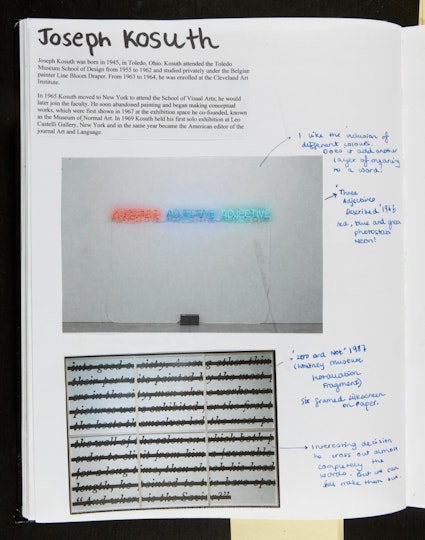 Joseph Kosuth
Joseph Kosuth was born in 1945, in Toledo, Ohio. Kosuth attended the Toledo
Museum School of Design from 1955 to 1962 and studied privately under the Belgian
painter Line Bloom Draper. From 1963 to 1964, he was enrolled at the Cleveland Art
Institute.
In 1965 Kosuth moved to New York to attend the School of Visual Arts; he would
later join the faculty. He soon abandoned painting and began making conceptual
works, which were first shown in 1967 at the exhibition space he co-founded, known
as the Museum of Normal Art. In 1969 Kosuth held his first solo exhibition at Leo
Castelli Gallery, New York and in the same year became the American editor of the
journal Art and Language.
I like the inclusion of
different colours.
Does it add another
layer of meaning
to a word.
'Three
Adjectives
Described' 1965
red, blue and green
neon!
ADJECTIVE ADJECTIVE ADJECTIVE
'zero and Not' 1987
(Whitney Museum
Installation
Fragment)
Six framed silkscreen
on paper.
Interesting decision
to cross out almost
completely the
words. But we can
still make them out.